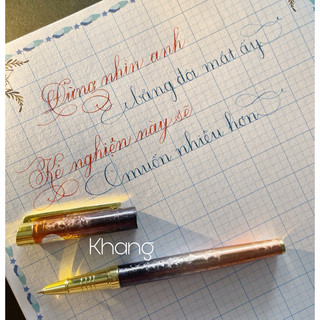 Đừng nhìn anh
bằng đôi mắt ấy
Kẻ nghiện này sẽ
muốn nhiều hơn
Khang